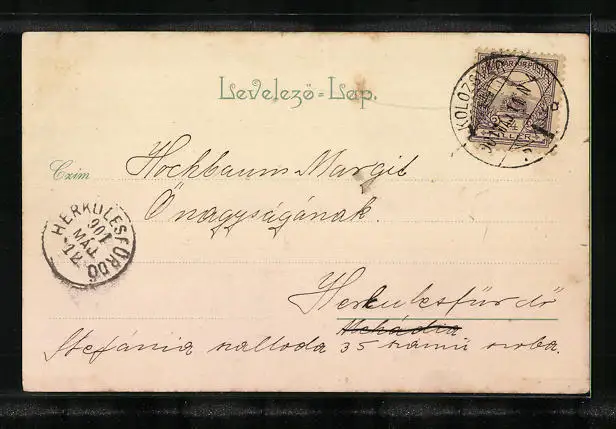 Levelező=Lap.
KOLOZSVÁR
FILLÉR
Czim Hochbaum Margit
Őnagyságának.
HERKULESFÜRDŐ
901
MÁJ.
12
Herkulesfürdő
Mehádia
Stefánia szalloda 35 számú szoba.